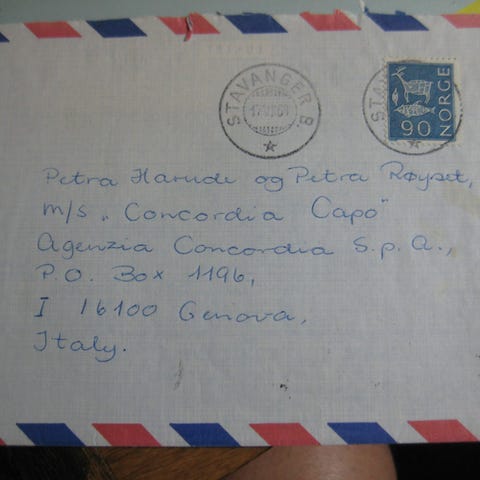 STAVANGER 8.
STAV
90 NORGE
Petra Harude og Petra Røyset,
m/s „Concordia Capo"
Agenzia Concordia S.p.A.,
P.O. Box 1196,
I 16100 Genova,
Italy.